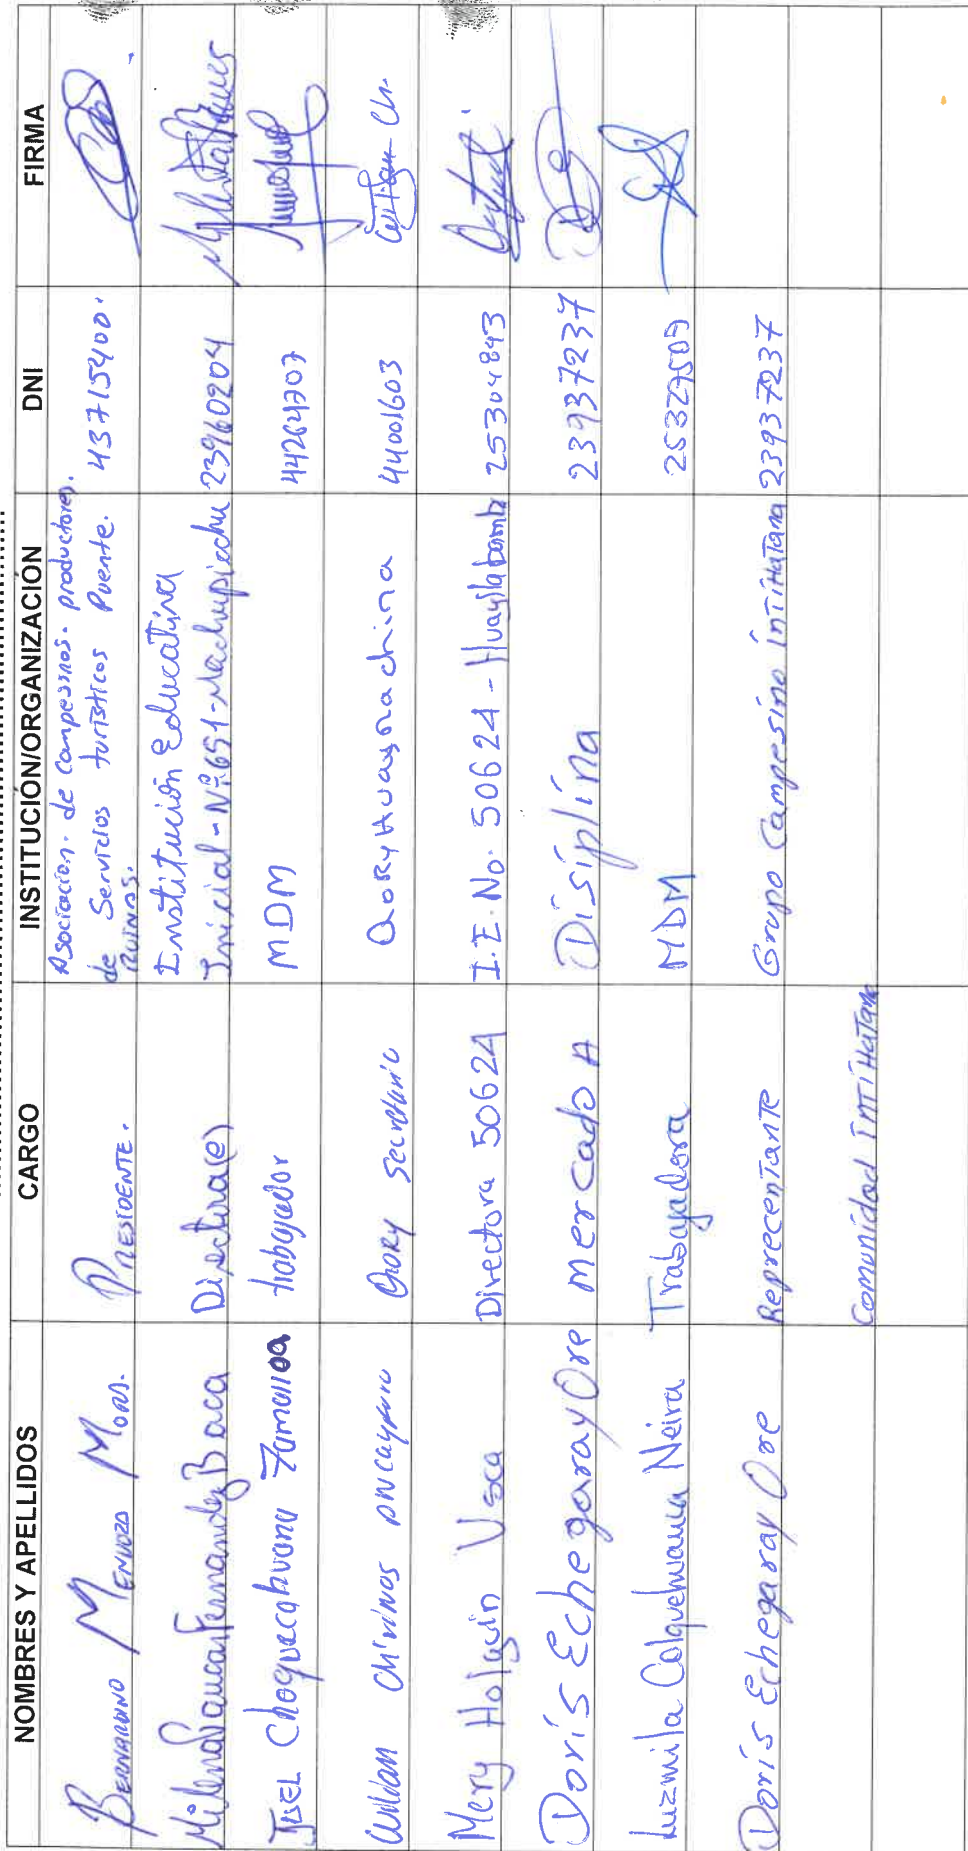 NOMBRES Y APELLIDOS CARGO INSTITUCIÓN/ORGANIZACIÓN DNI FIRMA
BERNARDINO MENDOZA PRESIDENTE. Asociacion. de Campesinos. productores. de Servicios turísticos Puente. Ruinas. 43715400.
Milena Paucar Fernandez Baca Directora(e) Institución Educativa Inicial - Nº 651 - Machupicchu 23960204
Choquecahuana trabajador MDM
Chinos QORY Secretario QoRy Huayrachina 44001603
Mery Holguin Usca Directora 50624 I.E. No. 50624 - Huayllabamba 25304843
Doris Echegaray Ore mercado A Disiplina 23937237
Luzmila Colquehuanca Neira Trabajadora MDM 25327509
Doris Echegaray Ore Reprecentante Grupo Campesino IntiHatana 23937237
Comunidad IntiHatana